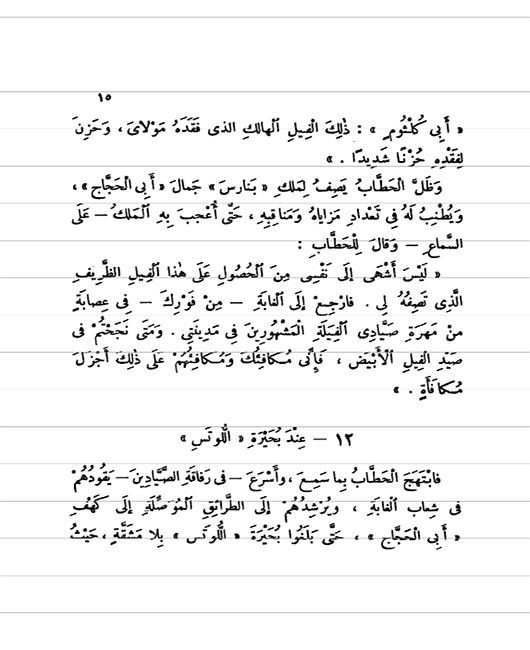 ١٥
« أَبِى كُلْثُومٍ » : ذٰلِكَ ٱلْفِيلِ ٱلْهالِكِ الذى فَقَدَهُ مَوْلاىَ ، وَحَزِنَ
لِفَقْدِهِ حُزْنًا شَدِيدًا . »
وَظَلَّ الْحَطَّابُ يَصِفُ لِمَلكِ « بَنارسَ » جَمالَ « أَبِى الْحَجَّاجِ » ،
وَيُطْنِبُ لَهُ فِى تَعْدادِ مَزاياهُ وَمَناقِبِهِ ، حَتَّى أُعْجبَ بِهِ ٱلْمَلكُ — عَلَى
السَّماعِ — وَقالَ لِلْحَطَّابِ :
« لَيْسَ أَشْهَى إِلَى نَفْسِى مِنَ ٱلْحُصُولِ عَلَى هٰذا ٱلْفِيلِ الظَّرِيفِ
الَّذِى تَصِفُهُ لِى . فارْجِعْ إِلَى ٱلْغابَةِ — مِنْ فَوْرِكَ — فِى عِصابَةٍ
مِنْ مَهَرَةِ صَيَّادِى ٱلْفِيَلَةِ ٱلْمَشْهُورِينَ فِى مَدِينَتِى . وَمَتَى نَجَحْتُمْ فى
صَيْدِ الْفِيلِ ٱلْأَبْيَضِ ، فَإِنِّى مُكافِئُكَ وَمُكافِئُهُمْ عَلَى ذٰلِكَ أَجْزَلَ
مُكافَأَةٍ . »
١٢ — عِنْدَ بُحَيْرَةِ « اللُّوتَسِ »
فابْتَهَجَ الْحَطَّابُ بِما سَمِعَ ، وأَسْرَعَ — فى رَفاقَةِ الصَّيَّادِينَ — يَقُودُهُمْ
فى شِعابِ ٱلْغابَةِ ، وَيُرْشِدُهُمْ إِلَى الطَّرائِقِ ٱلْمُوَصِّلَةِ إِلَى كَهْفِ
« أَبِى الْحَجَّاجِ » ، حَتَّى بَلَغُوا بُحَيْرَةَ « اللُّوتَسِ » بِلا مَشَقَّةٍ ، حَيْثُ